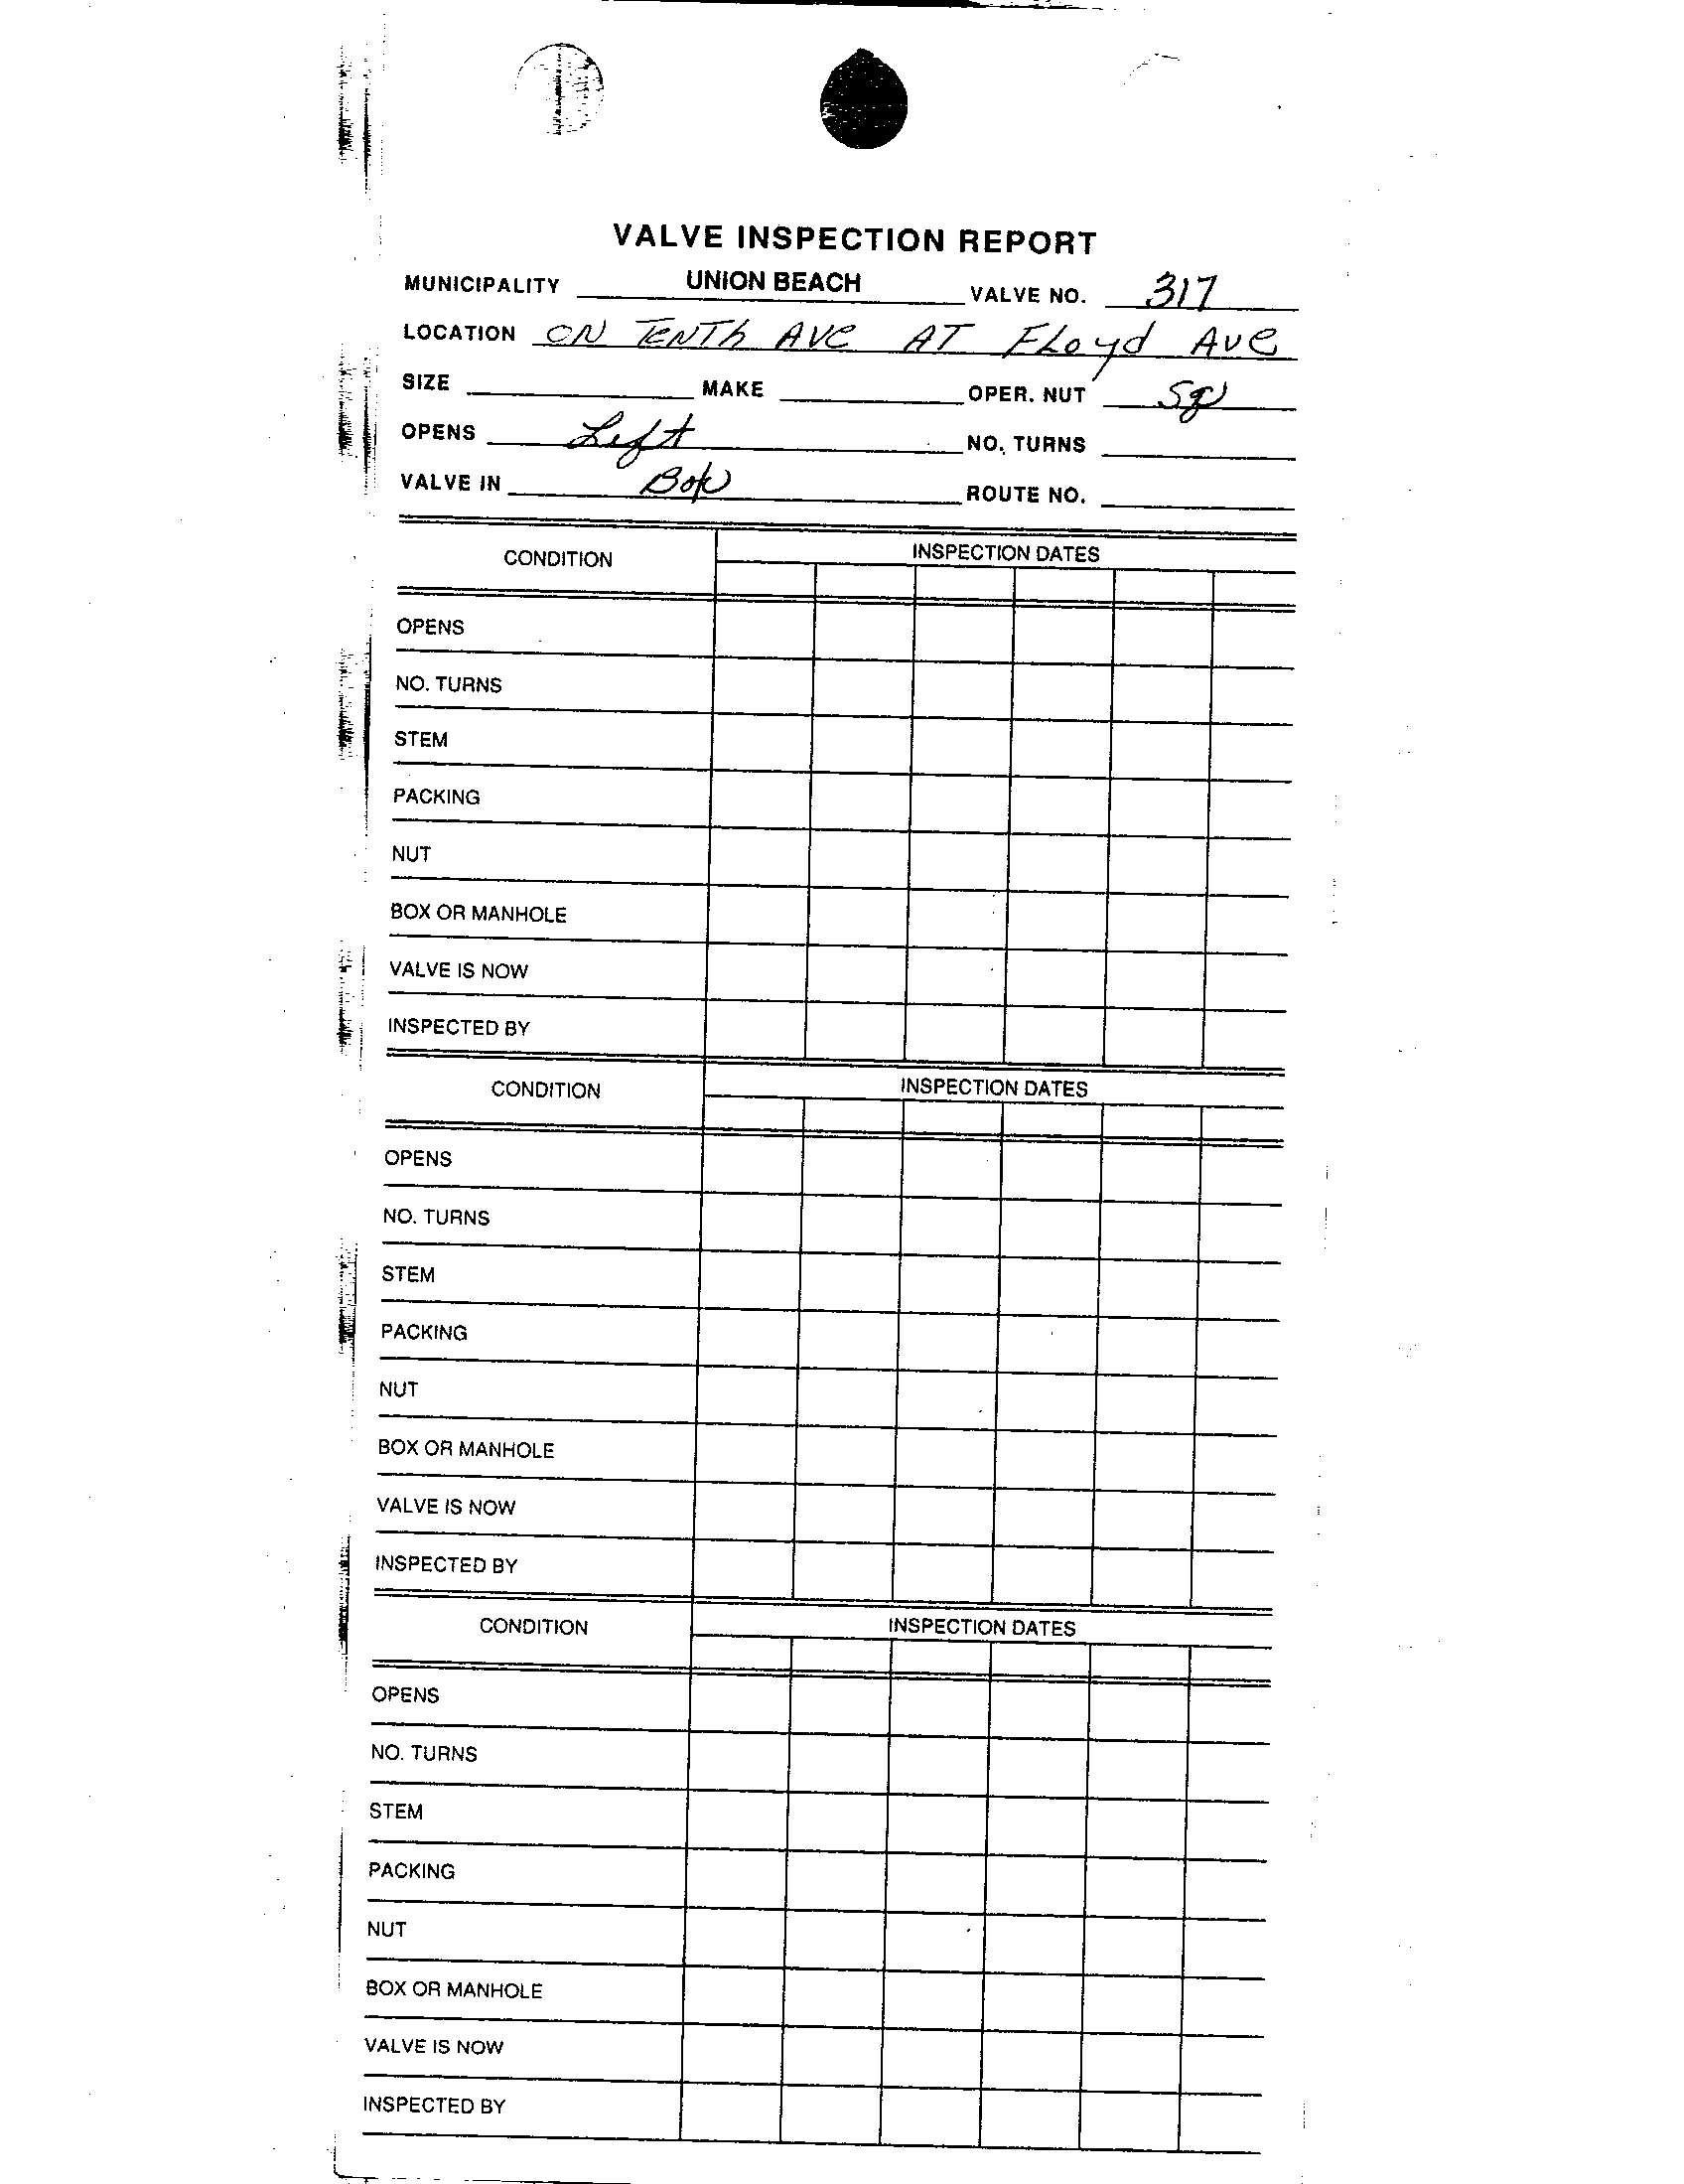 VALVE INSPECTION REPORT
MUNICIPALITY UNION BEACH VALVE NO. 317
LOCATION ON TENTh AVE AT FLoyd AVE
SIZE MAKE OPER. NUT Sq
OPENS Left NO. TURNS
VALVE IN Box ROUTE NO.
CONDITION INSPECTION DATES
OPENS
NO. TURNS
STEM
PACKING
NUT
BOX OR MANHOLE
VALVE IS NOW
INSPECTED BY
CONDITION INSPECTION DATES
OPENS
NO. TURNS
STEM
PACKING
NUT
BOX OR MANHOLE
VALVE IS NOW
INSPECTED BY
CONDITION INSPECTION DATES
OPENS
NO. TURNS
STEM
PACKING
NUT
BOX OR MANHOLE
VALVE IS NOW
INSPECTED BY